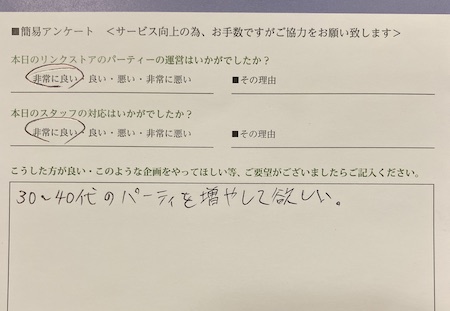 ■簡易アンケート　＜サービス向上の為、お手数ですがご協力をお願い致します＞
本日のリンクストアのパーティーの運営はいかがでしたか？
非常に良い・良い・悪い・非常に悪い　■その理由
本日のスタッフの対応はいかがでしたか？
非常に良い・良い・悪い・非常に悪い　■その理由
こうした方が良い・このような企画をやってほしい等、ご要望がございましたらご記入ください。
30～40代のパーティを増やして欲しい。